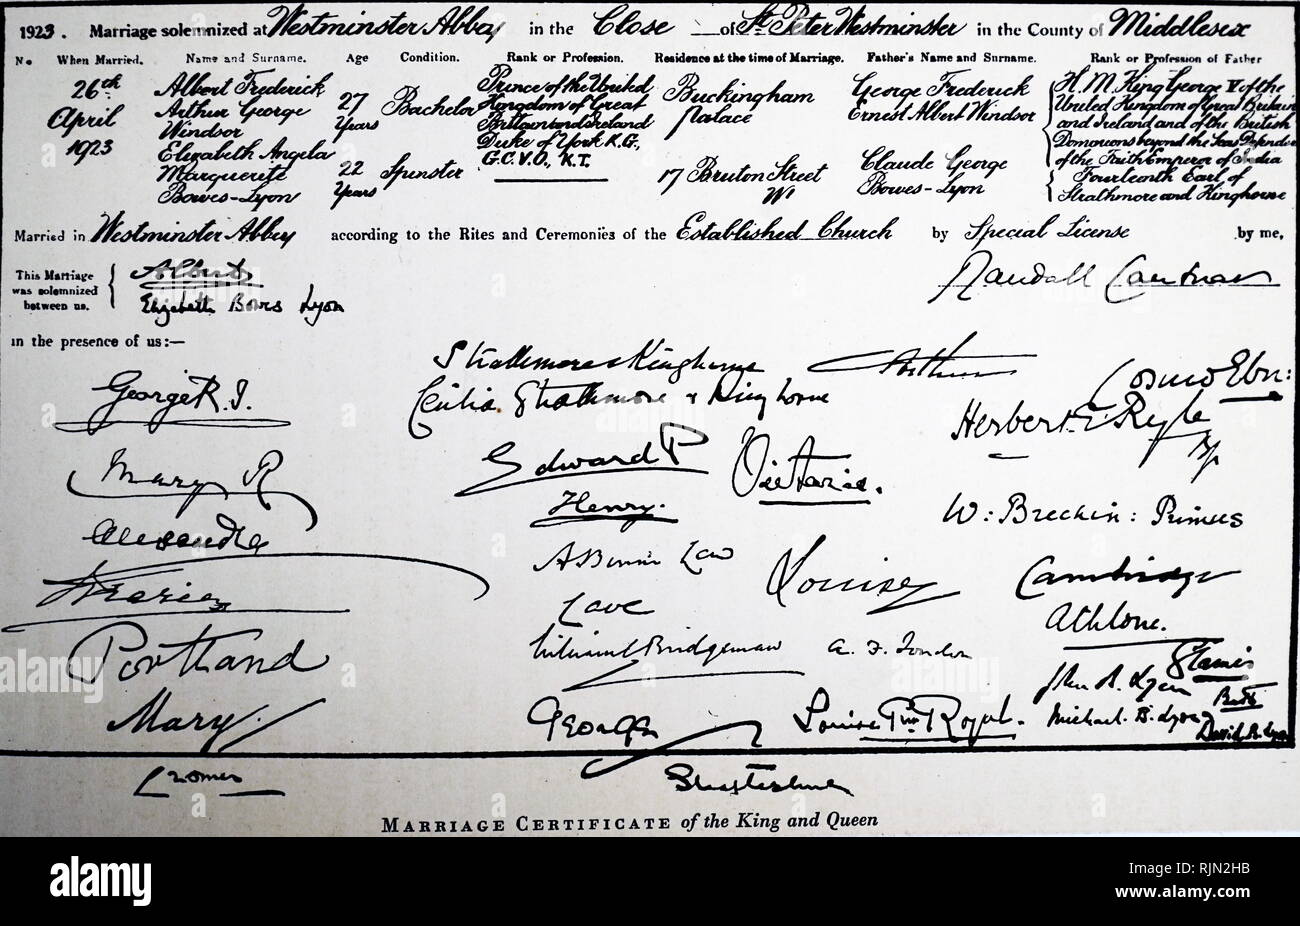 1923. Marriage solemnized at Westminster Abbey in the Close of St. Peter Westminster in the County of Middlesex
No When Married. Name and Surname. Age Condition. Rank or Profession. Residence at the time of Marriage. Father's Name and Surname. Rank or Profession of Father
26th April 1923
Albert Frederick
Arthur George
Windsor
27 Years
Bachelor
Prince of the United
Kingdom of Great
Britain and Ireland
Duke of York K.G.,
G.C.V.O, K.T.
Buckingham
Palace
George Frederick
Ernest Albert Windsor
H. M. King George V of the
United Kingdom of Great Britain
and Ireland and of the British
Dominions beyond the Seas Defender
of the Faith Emperor of India
Elizabeth Angela
Marguerite
Bowes-Lyon
22 Years
Spinster
17 Bruton Street
W1
Claude George
Bowes-Lyon
Fourteenth Earl of
Strathmore and Kinghorne
Married in Westminster Abbey according to the Rites and Ceremonies of the Established Church by Special License by me,
This Marriage
was solemnized
between us,
Albert
Elizabeth Bowes Lyon
Randall Cantuar
in the presence of us:—
George R. I.
Mary R
Alexandra
Portland
Mary.
Cromer
Strathmore & Kinghorne
Cecilia Strathmore & Kinghorne
Edward P
Henry.
A Bonar Law
Cave
William C Bridgeman
George
Arthur
Victoria.
Louise
A. F. London
Louise Pss Royal.
Shaftesbury
Cosmo Ebor:
Herbert E Ryle
Bp
W: Brechin: Primus
Cambridge
Athlone.
Glamis
John B. Lyon
Michael. B. Lyon
David B. Lyon
MARRIAGE CERTIFICATE of the King and Queen
alamy
Image ID: RJN2HB
www.alamy.com